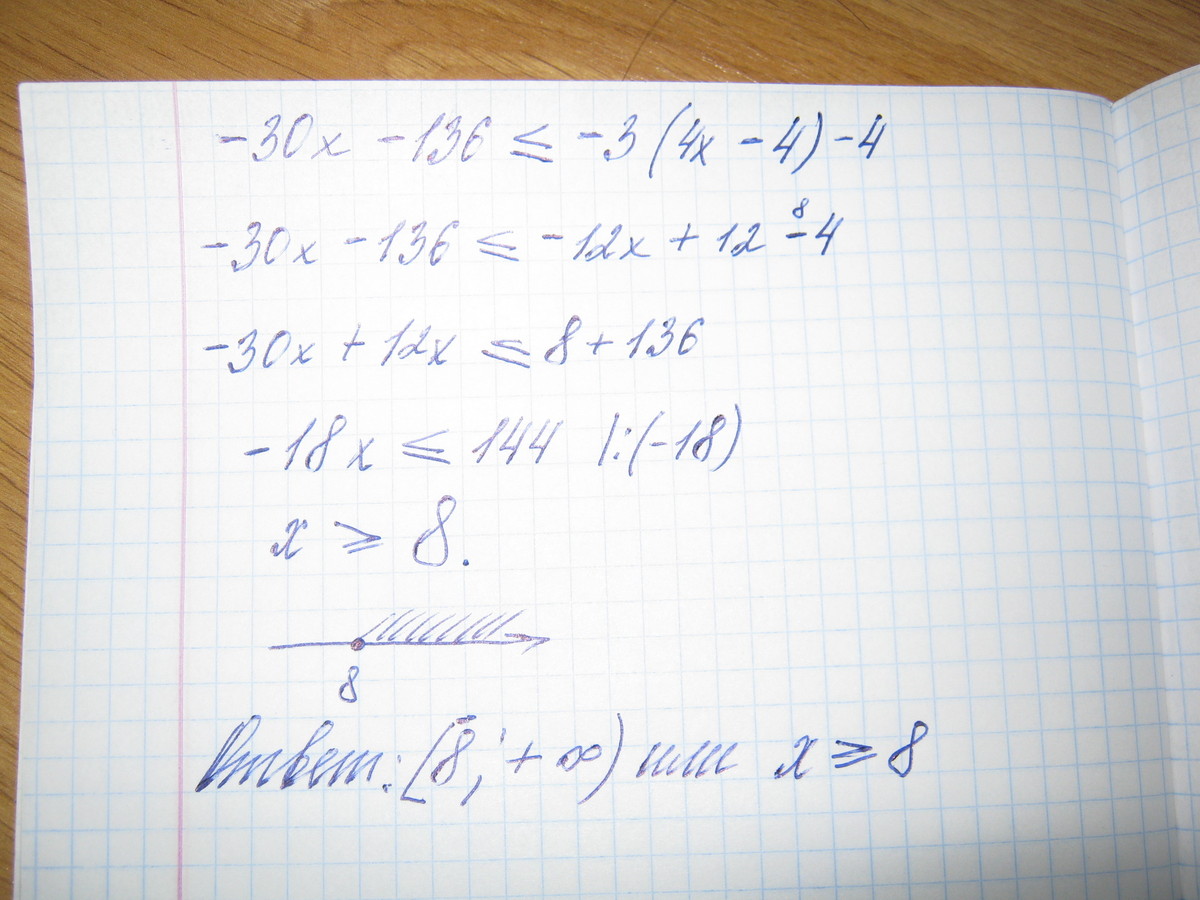 -30x -136 ≤ -3(4x - 4) -4
8
-30x -136 ≤ -12x + 12 -4
-30x + 12x ≤ 8 + 136
-18x ≤ 144 |:(-18)
x ≥ 8.
8
Ответ: [8; +∞) или x ≥ 8